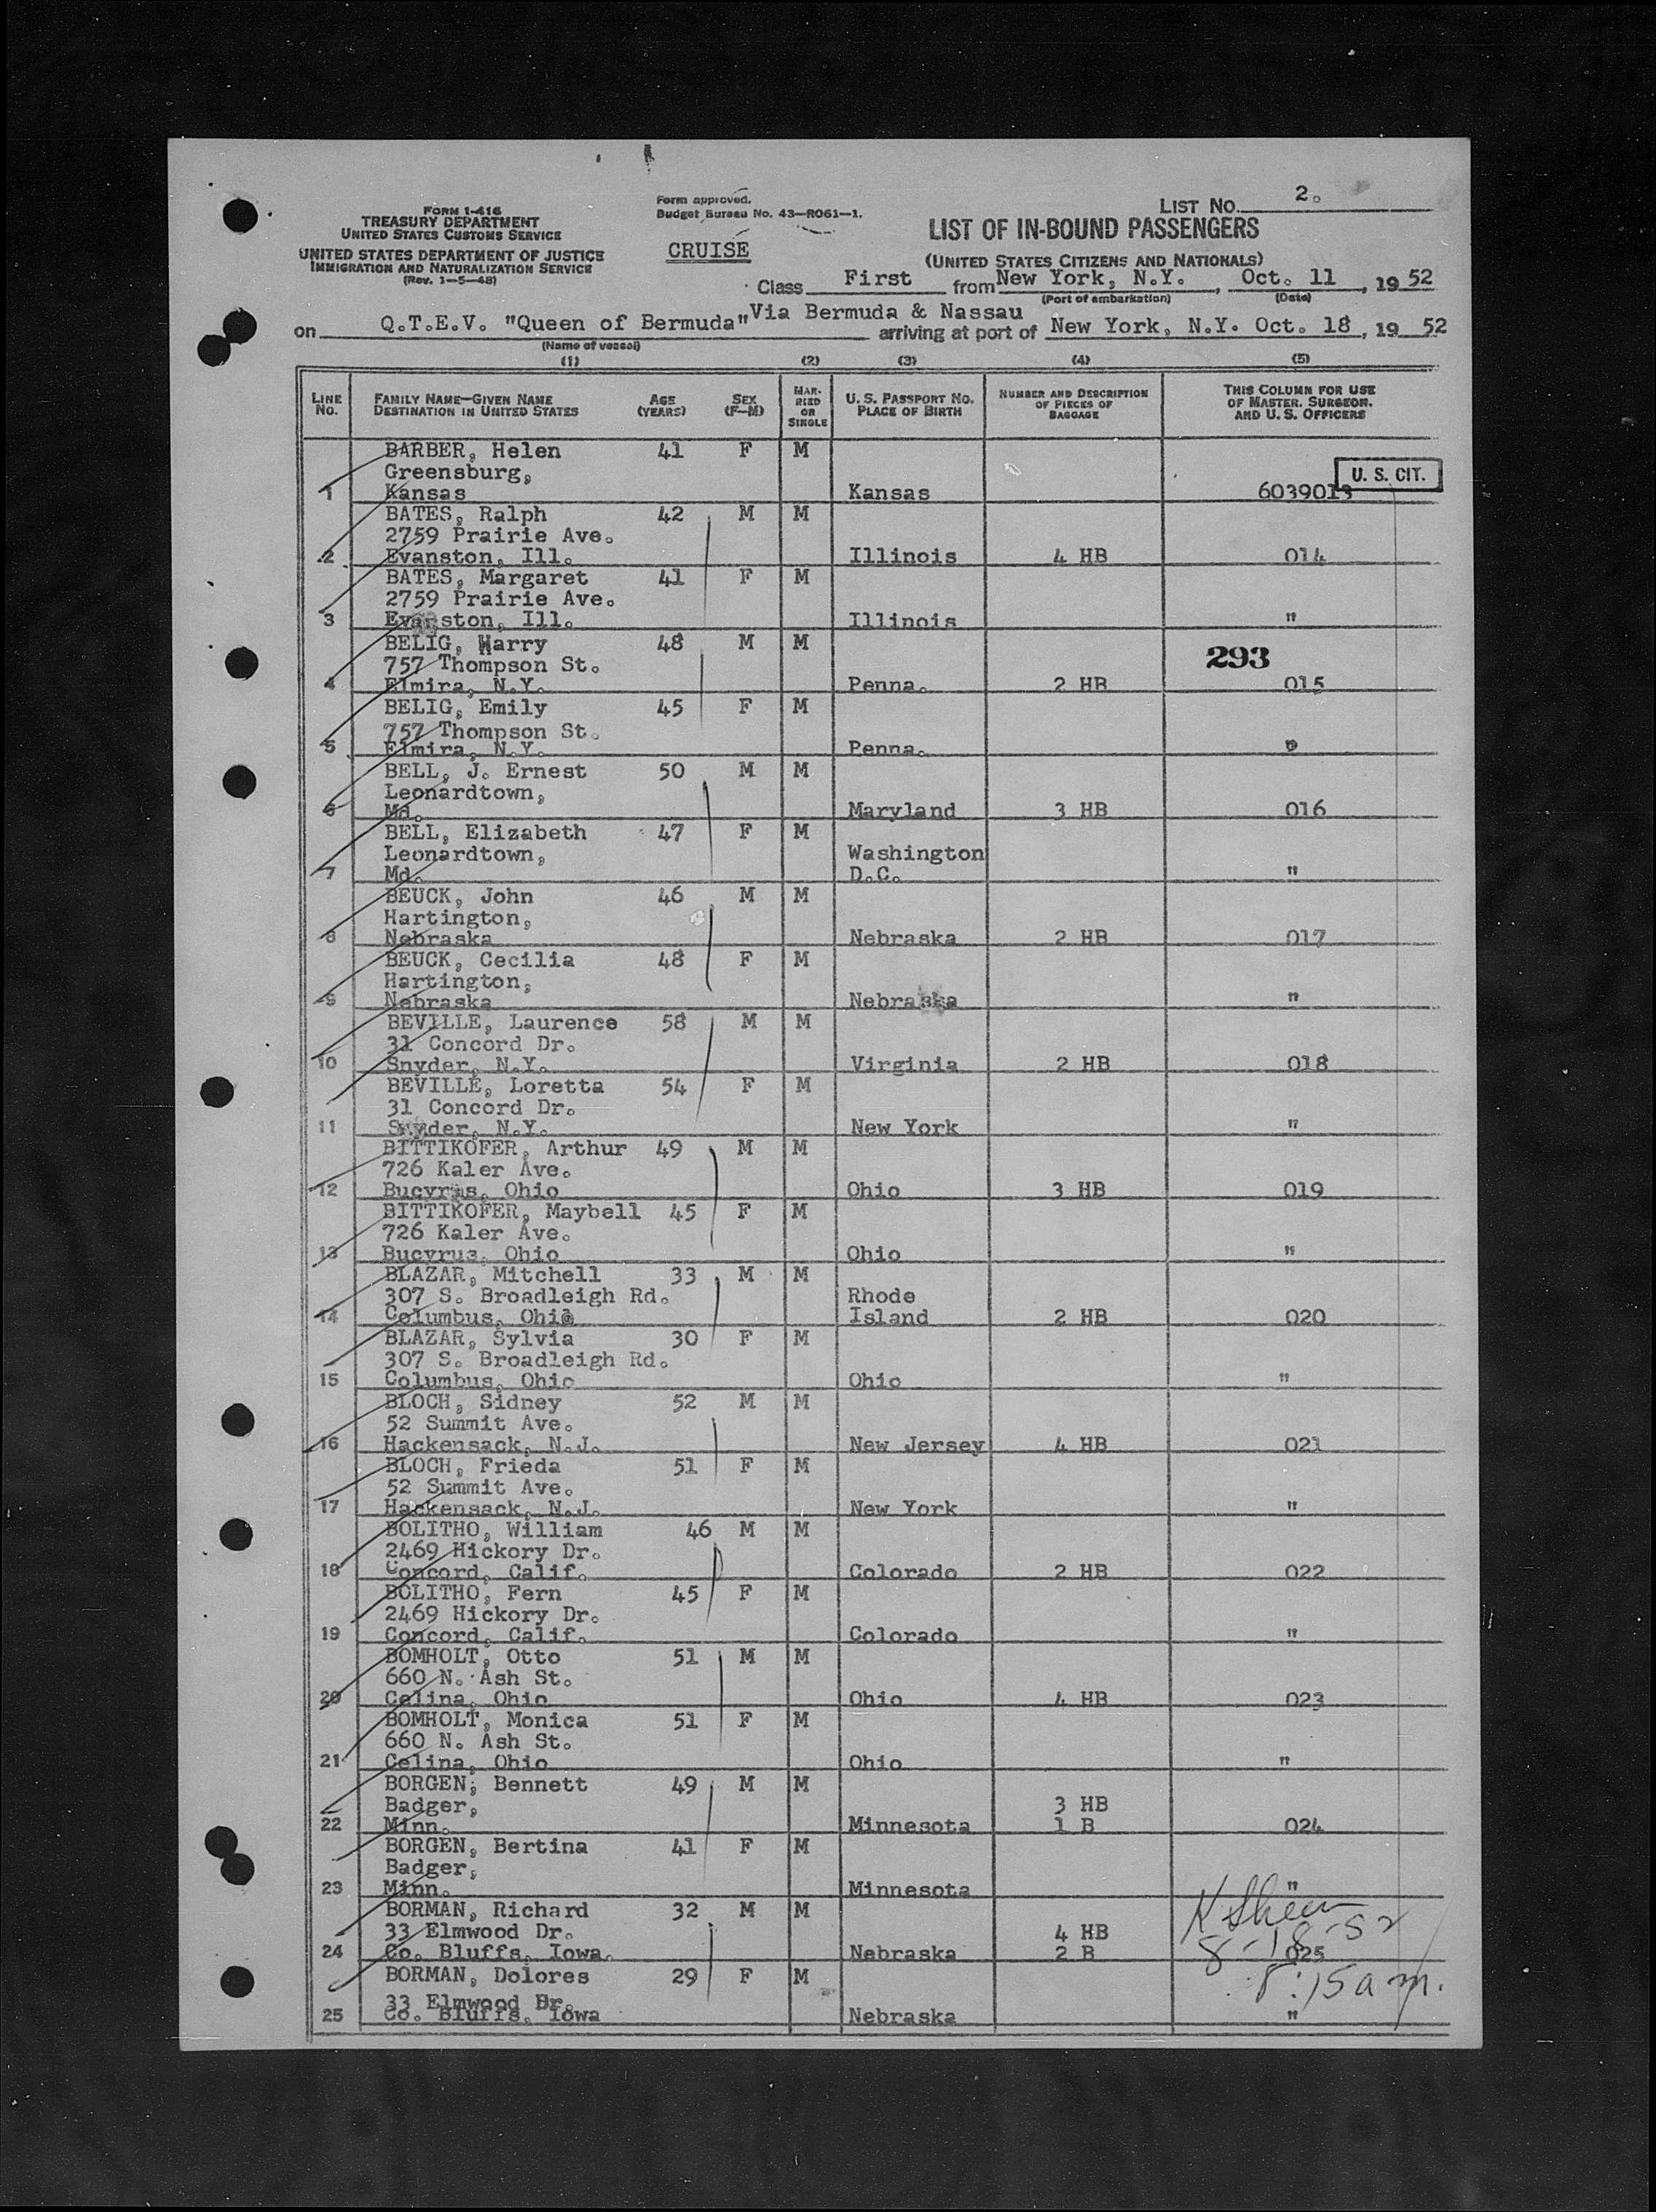 FORM I-416
TREASURY DEPARTMENT
UNITED STATES CUSTOMS SERVICE
UNITED STATES DEPARTMENT OF JUSTICE
IMMIGRATION AND NATURALIZATION SERVICE
(Rev. 1-5-48)
Form approved.
Budget Bureau No. 43-R061-1.
CRUISE
LIST NO. 2.
LIST OF IN-BOUND PASSENGERS
(UNITED STATES CITIZENS AND NATIONALS)
Class First from New York, N.Y., Oct. 11, 1952
(Port of embarkation) (Date)
on Q.T.E.V. "Queen of Bermuda" Via Bermuda & Nassau arriving at port of New York, N.Y. Oct. 18, 1952
(Name of vessel)
(1) (2) (3) (4) (5)
LINE NO. FAMILY NAME—GIVEN NAME DESTINATION IN UNITED STATES AGE (YEARS) SEX (F-M) MARRIED OR SINGLE U. S. PASSPORT NO. PLACE OF BIRTH NUMBER AND DESCRIPTION OF PIECES OF BAGGAGE THIS COLUMN FOR USE OF MASTER, SURGEON, AND U. S. OFFICERS
BARBER, Helen 41 F M
Greensburg,
U. S. CIT.
1 Kansas Kansas 6039013
BATES, Ralph 42 M M
2759 Prairie Ave.
2 Evanston, Ill. Illinois 4 HB 014
BATES, Margaret 41 F M
2759 Prairie Ave.
3 Evanston, Ill. Illinois "
BELIG, Harry 48 M M
757 Thompson St. 293
4 Elmira, N.Y. Penna. 2 HB 015
BELIG, Emily 45 F M
757 Thompson St.
5 Elmira, N.Y. Penna. "
BELL, J. Ernest 50 M M
Leonardtown,
6 Md. Maryland 3 HB 016
BELL, Elizabeth 47 F M
Leonardtown, Washington
7 Md. D.C. "
BEUCK, John 46 M M
Hartington,
8 Nebraska Nebraska 2 HB 017
BEUCK, Cecilia 48 F M
Hartington,
9 Nebraska Nebraska "
BEVILLE, Laurence 58 M M
31 Concord Dr.
10 Snyder, N.Y. Virginia 2 HB 018
BEVILLE, Loretta 54 F M
31 Concord Dr.
11 Snyder, N.Y. New York "
BITTIKOFER, Arthur 49 M M
726 Kaler Ave.
12 Bucyrus, Ohio Ohio 3 HB 019
BITTIKOFER, Maybell 45 F M
726 Kaler Ave.
13 Bucyrus, Ohio Ohio "
BLAZAR, Mitchell 33 M M
307 S. Broadleigh Rd. Rhode
14 Columbus, Ohio Island 2 HB 020
BLAZAR, Sylvia 30 F M
307 S. Broadleigh Rd.
15 Columbus, Ohio Ohio "
BLOCH, Sidney 52 M M
52 Summit Ave.
16 Hackensack, N.J. New Jersey 4 HB 021
BLOCH, Frieda 51 F M
52 Summit Ave.
17 Hackensack, N.J. New York "
BOLITHO, William 46 M M
2469 Hickory Dr.
18 Concord, Calif. Colorado 2 HB 022
BOLITHO, Fern 45 F M
2469 Hickory Dr.
19 Concord, Calif. Colorado "
BOMHOLT, Otto 51 M M
660 N. Ash St.
20 Celina, Ohio Ohio 4 HB 023
BOMHOLT, Monica 51 F M
660 N. Ash St.
21 Celina, Ohio Ohio "
BORGEN, Bennett 49 M M
Badger, 3 HB
22 Minn. Minnesota 1 B 024
BORGEN, Bertina 41 F M
Badger,
23 Minn. Minnesota "
BORMAN, Richard 32 M M
33 Elmwood Dr. 4 HB
24 Co. Bluffs, Iowa. Nebraska 2 B 025
8-18-52
BORMAN, Dolores 29 F M
8:15 a m.
33 Elmwood Dr.
25 Co. Bluffs, Iowa Nebraska "